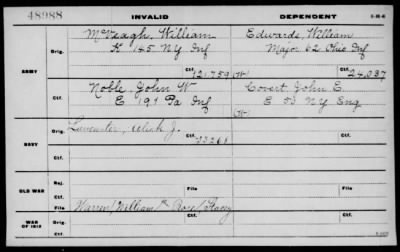 48988 INVALID DEPENDENT
McVeagh, William Edwards, William
Orig. K 145 NY Inf Major 62 Ohio Inf
ARMY Ctf. 121,759 (W) Ctf. 24,037
Noble, John W Covert, John E.
Orig. E 191 Pa Inf E 50 NY Eng
Ctf. (W)
Orig. Lancaster, J.
NAVY Ctf. 23268
Rej.
OLD WAR Ctf. File File
WAR OF 1812 Orig. Warren/William/ Rose/
Ctf. File File